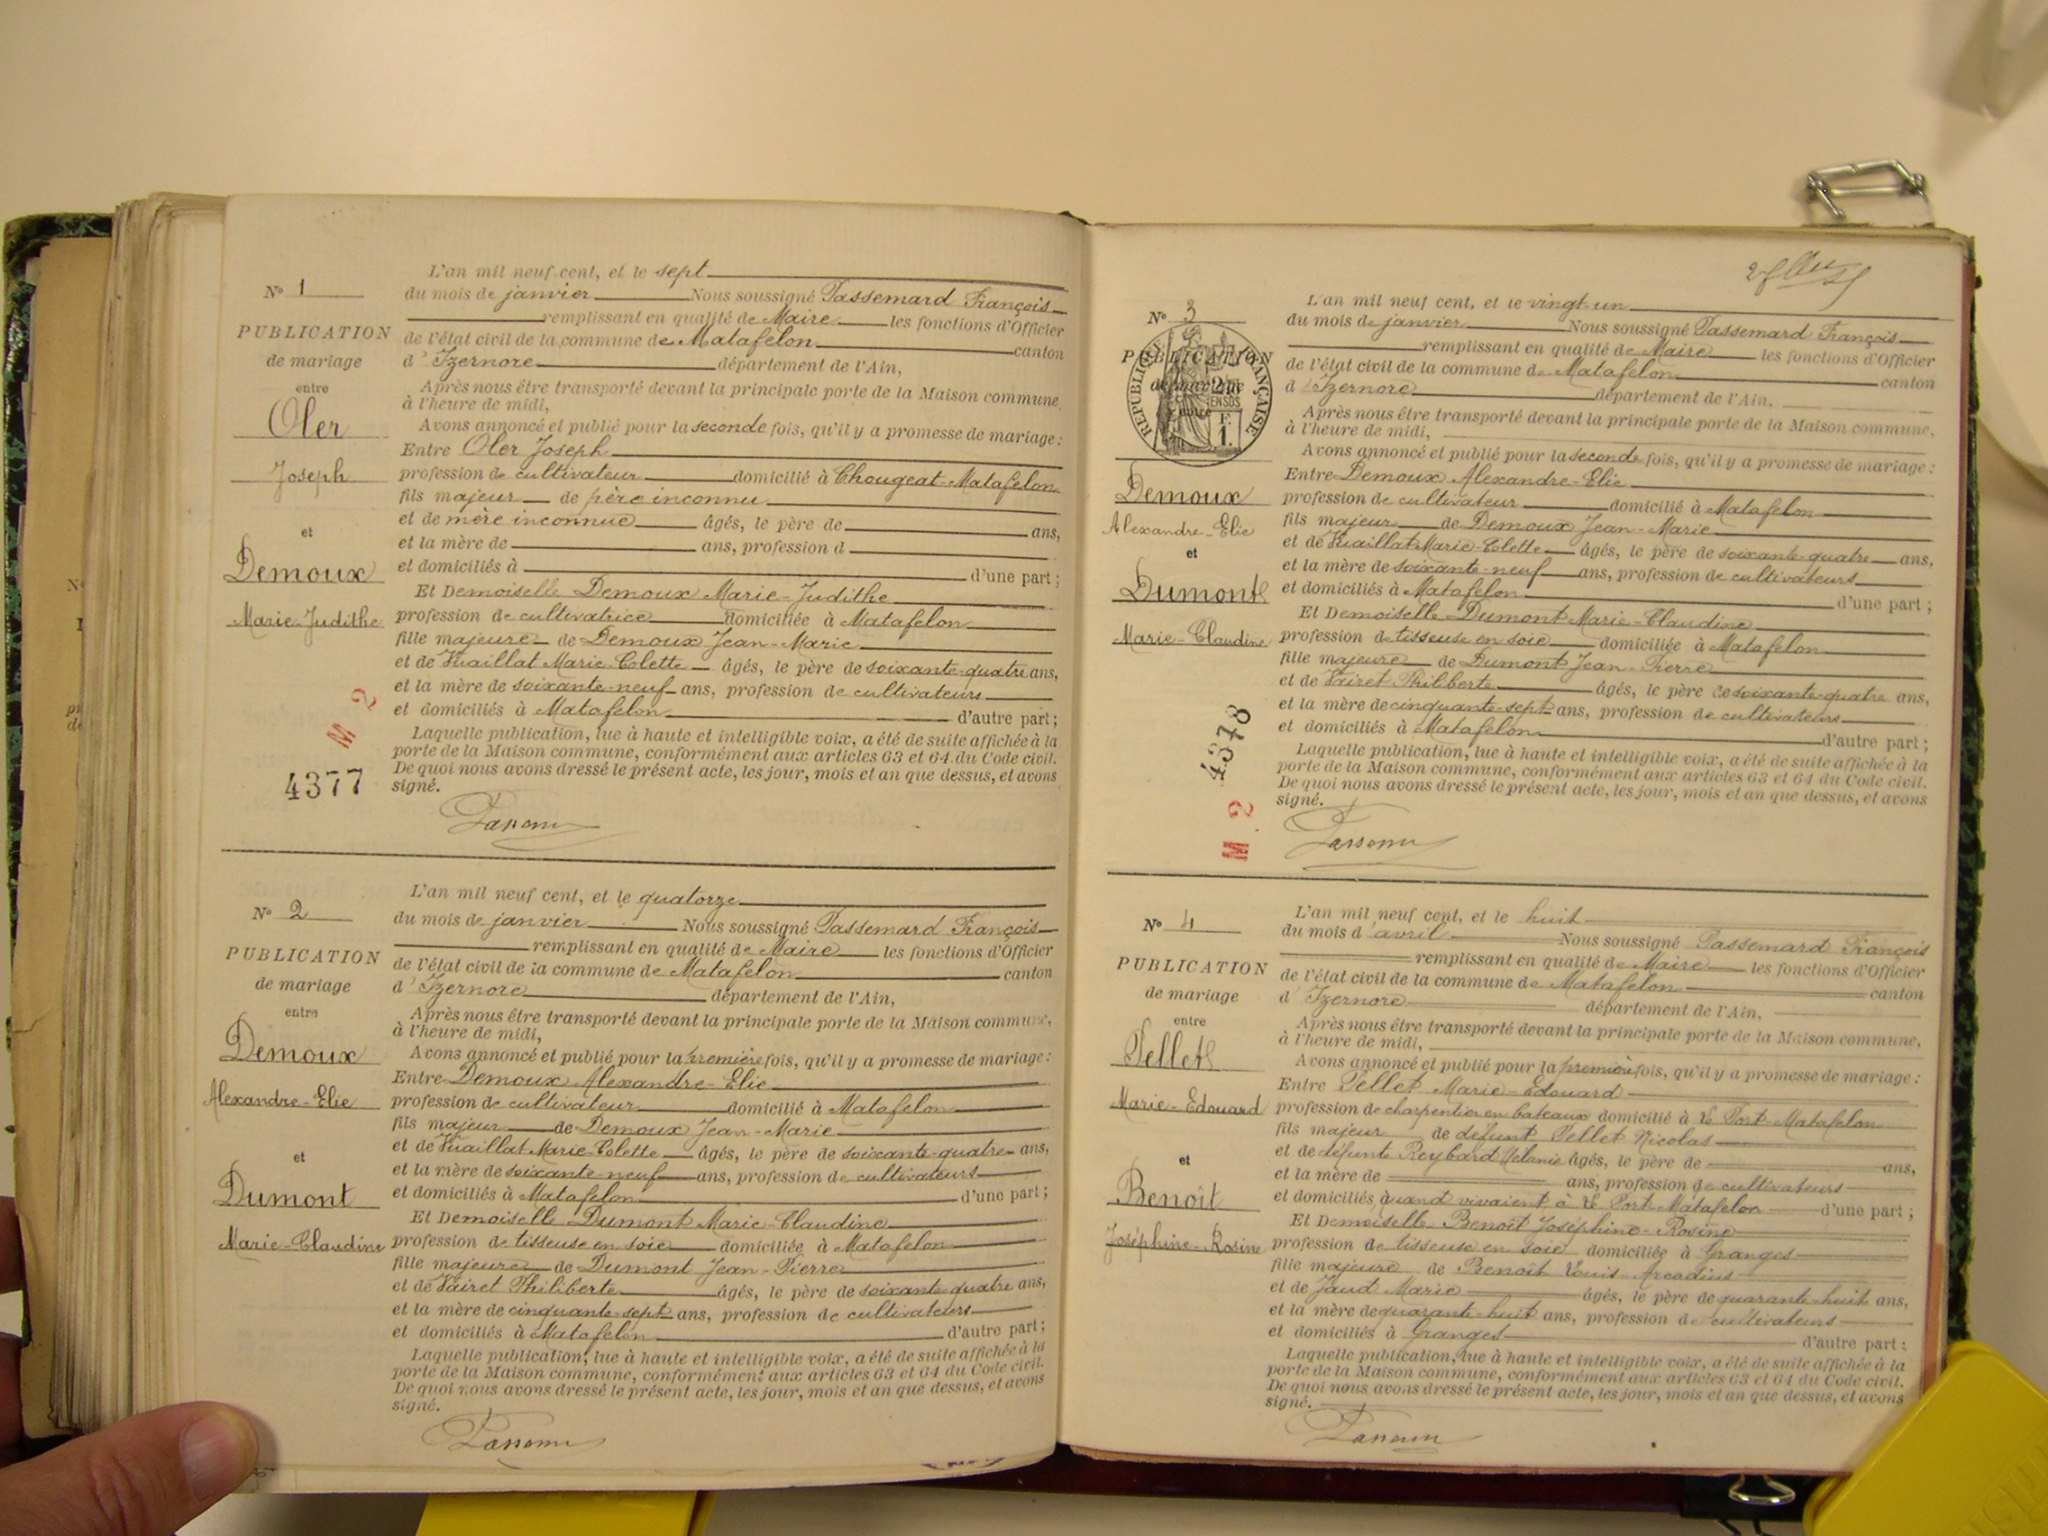 N° 1
PUBLICATION
de mariage
entre
Oler
Joseph
et
Demoux
Marie-Judithe
M 2
4377
L'an mil neuf cent, et le sept
du mois de janvier Nous soussigné Tassemard François
remplissant en qualité de Maire les fonctions d'Officier
de l'état civil de la commune de Matafelon canton
d'Izernore département de l'Ain,
Après nous être transporté devant la principale porte de la Maison commune,
à l'heure de midi,
Avons annoncé et publié pour la seconde fois, qu'il y a promesse de mariage:
Entre Oler Joseph
profession de cultivateur domicilié à Chougeat-Matafelon
fils majeur de père inconnu
et de mère inconnue âgés, le père de ans,
et la mère de ans, profession d
et domiciliés à d'une part;
Et Demoiselle Demoux Marie-Judithe
profession de cultivatrice domiciliée à Matafelon
fille majeure de Demoux Jean-Marie
et de Vuaillat Marie-Colette âgés, le père de soixante-quatre ans,
et la mère de soixante-neuf ans, profession de cultivateurs
et domiciliés à Matafelon d'autre part;
Laquelle publication, lue à haute et intelligible voix, a été de suite affichée à la
porte de la Maison commune, conformément aux articles 63 et 64 du Code civil.
De quoi nous avons dressé le présent acte, les jour, mois et an que dessus, et avons
signé.
N° 2
PUBLICATION
de mariage
entre
Demoux
Alexandre-Elie
et
Dumont
Marie-Claudine
L'an mil neuf cent, et le quatorze
du mois de janvier Nous soussigné Tassemard François
remplissant en qualité de Maire les fonctions d'Officier
de l'état civil de la commune de Matafelon canton
d'Izernore département de l'Ain,
Après nous être transporté devant la principale porte de la Maison commune,
à l'heure de midi,
Avons annoncé et publié pour la première fois, qu'il y a promesse de mariage:
Entre Demoux Alexandre-Elie
profession de cultivateur domicilié à Matafelon
fils majeur de Demoux Jean-Marie
et de Vuaillat Marie-Colette âgés, le père de soixante-quatre ans,
et la mère de soixante-neuf ans, profession de cultivateurs
et domiciliés à Matafelon d'une part;
Et Demoiselle Dumont Marie-Claudine
profession de tisseuse en soie domiciliée à Matafelon
fille majeure de Dumont Jean-Pierre
et de Vairet Philiberte âgés, le père de soixante-quatre ans,
et la mère de cinquante-sept ans, profession de cultivateurs
et domiciliés à Matafelon d'autre part;
Laquelle publication, lue à haute et intelligible voix, a été de suite affichée à la
porte de la Maison commune, conformément aux articles 63 et 64 du Code civil.
De quoi nous avons dressé le présent acte, les jour, mois et an que dessus, et avons
signé.
N° 3
PUBLICATION
de mariage
entre
RÉPUBLIQUE FRANÇAISE
Demoux
Alexandre-Elie
et
Dumont
Marie-Claudine
4378
M 2
L'an mil neuf cent, et le vingt-un
du mois de janvier Nous soussigné Tassemard François
remplissant en qualité de Maire les fonctions d'Officier
de l'état civil de la commune de Matafelon canton
d'Izernore département de l'Ain.
Après nous être transporté devant la principale porte de la Maison commune,
à l'heure de midi,
Avons annoncé et publié pour la seconde fois, qu'il y a promesse de mariage:
Entre Demoux Alexandre-Elie
profession de cultivateur domicilié à Matafelon
fils majeur de Demoux Jean-Marie
et de Vuaillat Marie-Colette âgés, le père de soixante-quatre ans,
et la mère de soixante-neuf ans, profession de cultivateurs
et domiciliés à Matafelon d'une part;
Et Demoiselle Dumont Marie-Claudine
profession de tisseuse en soie domiciliée à Matafelon
fille majeure de Dumont Jean-Pierre
et de Vairet Philiberte âgés, le père de soixante-quatre ans,
et la mère de cinquante-sept ans, profession de cultivateurs
et domiciliés à Matafelon d'autre part;
Laquelle publication, lue à haute et intelligible voix, a été de suite affichée à la
porte de la Maison commune, conformément aux articles 63 et 64 du Code civil.
De quoi nous avons dressé le présent acte, les jour, mois et an que dessus, et avons
signé.
N° 4
PUBLICATION
de mariage
entre
Pellet
Marie-Edouard
et
Benoît
Joséphine-Rosine
L'an mil neuf cent, et le huit
du mois d'avril Nous soussigné Tassemard François
remplissant en qualité de Maire les fonctions d'Officier
de l'état civil de la commune de Matafelon canton
d'Izernore département de l'Ain,
Après nous être transporté devant la principale porte de la Maison commune,
à l'heure de midi,
Avons annoncé et publié pour la première fois, qu'il y a promesse de mariage:
Entre Pellet Marie-Edouard
profession de charpentier en bateaux domicilié à Le Port-Matafelon
fils majeur de défunt Pellet Nicolas
et de défunte Reybard Mélanie âgés, le père de ans,
et la mère de ans, profession de cultivateurs
et domiciliés quand vivaient à Le Port-Matafelon d'une part;
Et Demoiselle Benoît Joséphine-Rosine
profession de tisseuse en soie domiciliée à Granges
fille majeure de Benoît Louis-Arcadius
et de Jaud Marie âgés, le père de quarante-huit ans,
et la mère de quarante-huit ans, profession de cultivateurs
et domiciliés à Granges d'autre part;
Laquelle publication, lue à haute et intelligible voix, a été de suite affichée à la
porte de la Maison commune, conformément aux articles 63 et 64 du Code civil.
De quoi nous avons dressé le présent acte, les jour, mois et an que dessus, et avons
signé.